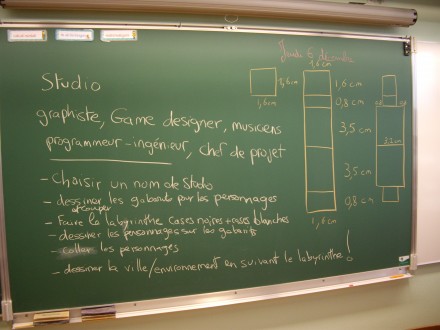 Jeudi 6 décembre
Studio
graphiste, Game designer, musiciens
programmeur-ingénieur, chef de projet
- Choisir un nom de Studio
- dessiner les gabarits pour les personnages
découper
- Faire le labyrinthe cases noires + cases blanches
- dessiner les personnages sur les gabarits
- coller les personnages
- dessiner la ville/environnement en suivant le labyrinthe!
1,6 cm
1,6 cm
1,6 cm
1,6 cm
0,8 cm
3,5 cm
3,5 cm
0,8 cm
1,6 cm